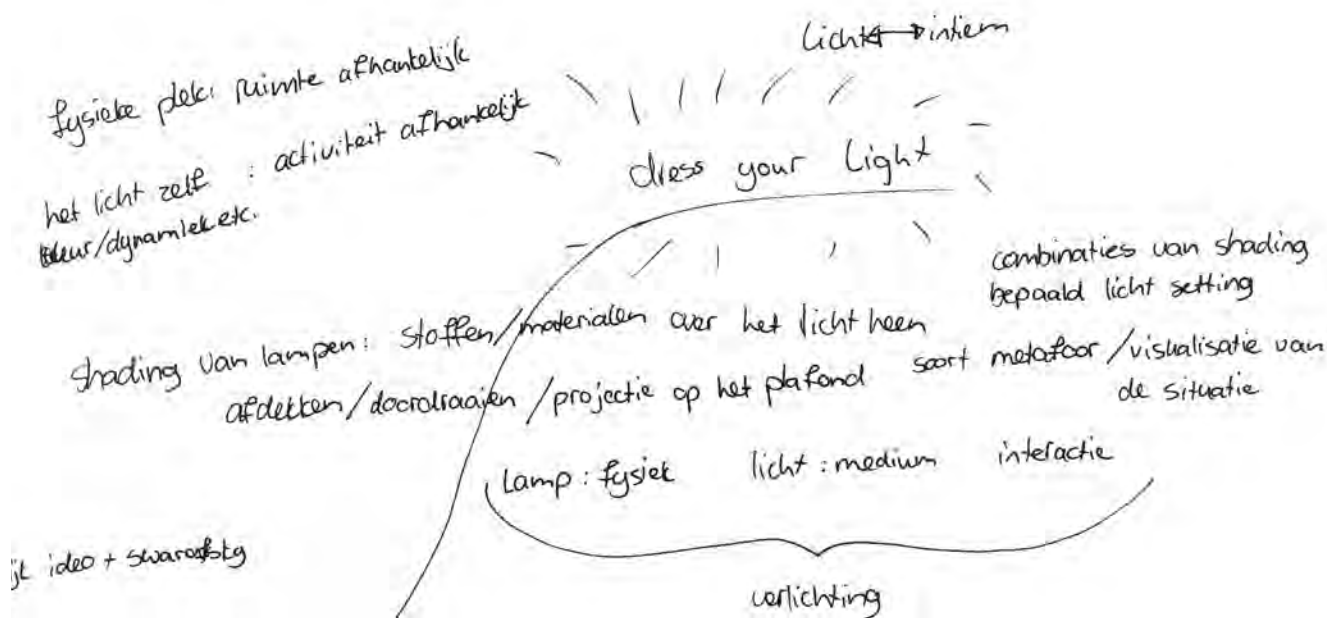 licht ↔ intiem
fysieke plek: ruimte afhankelijk
het licht zelf : activiteit afhankelijk
kleur/dynamiek etc.
dress your light
combinaties van shading
bepaald licht setting
shading van lampen: stoffen/materialen over het licht heen
afdekken/doordraaien/projectie op het plafond
soort metafoor/visualisatie van
de situatie
lamp: fysiek licht: medium interactie
verlichting
ideo +